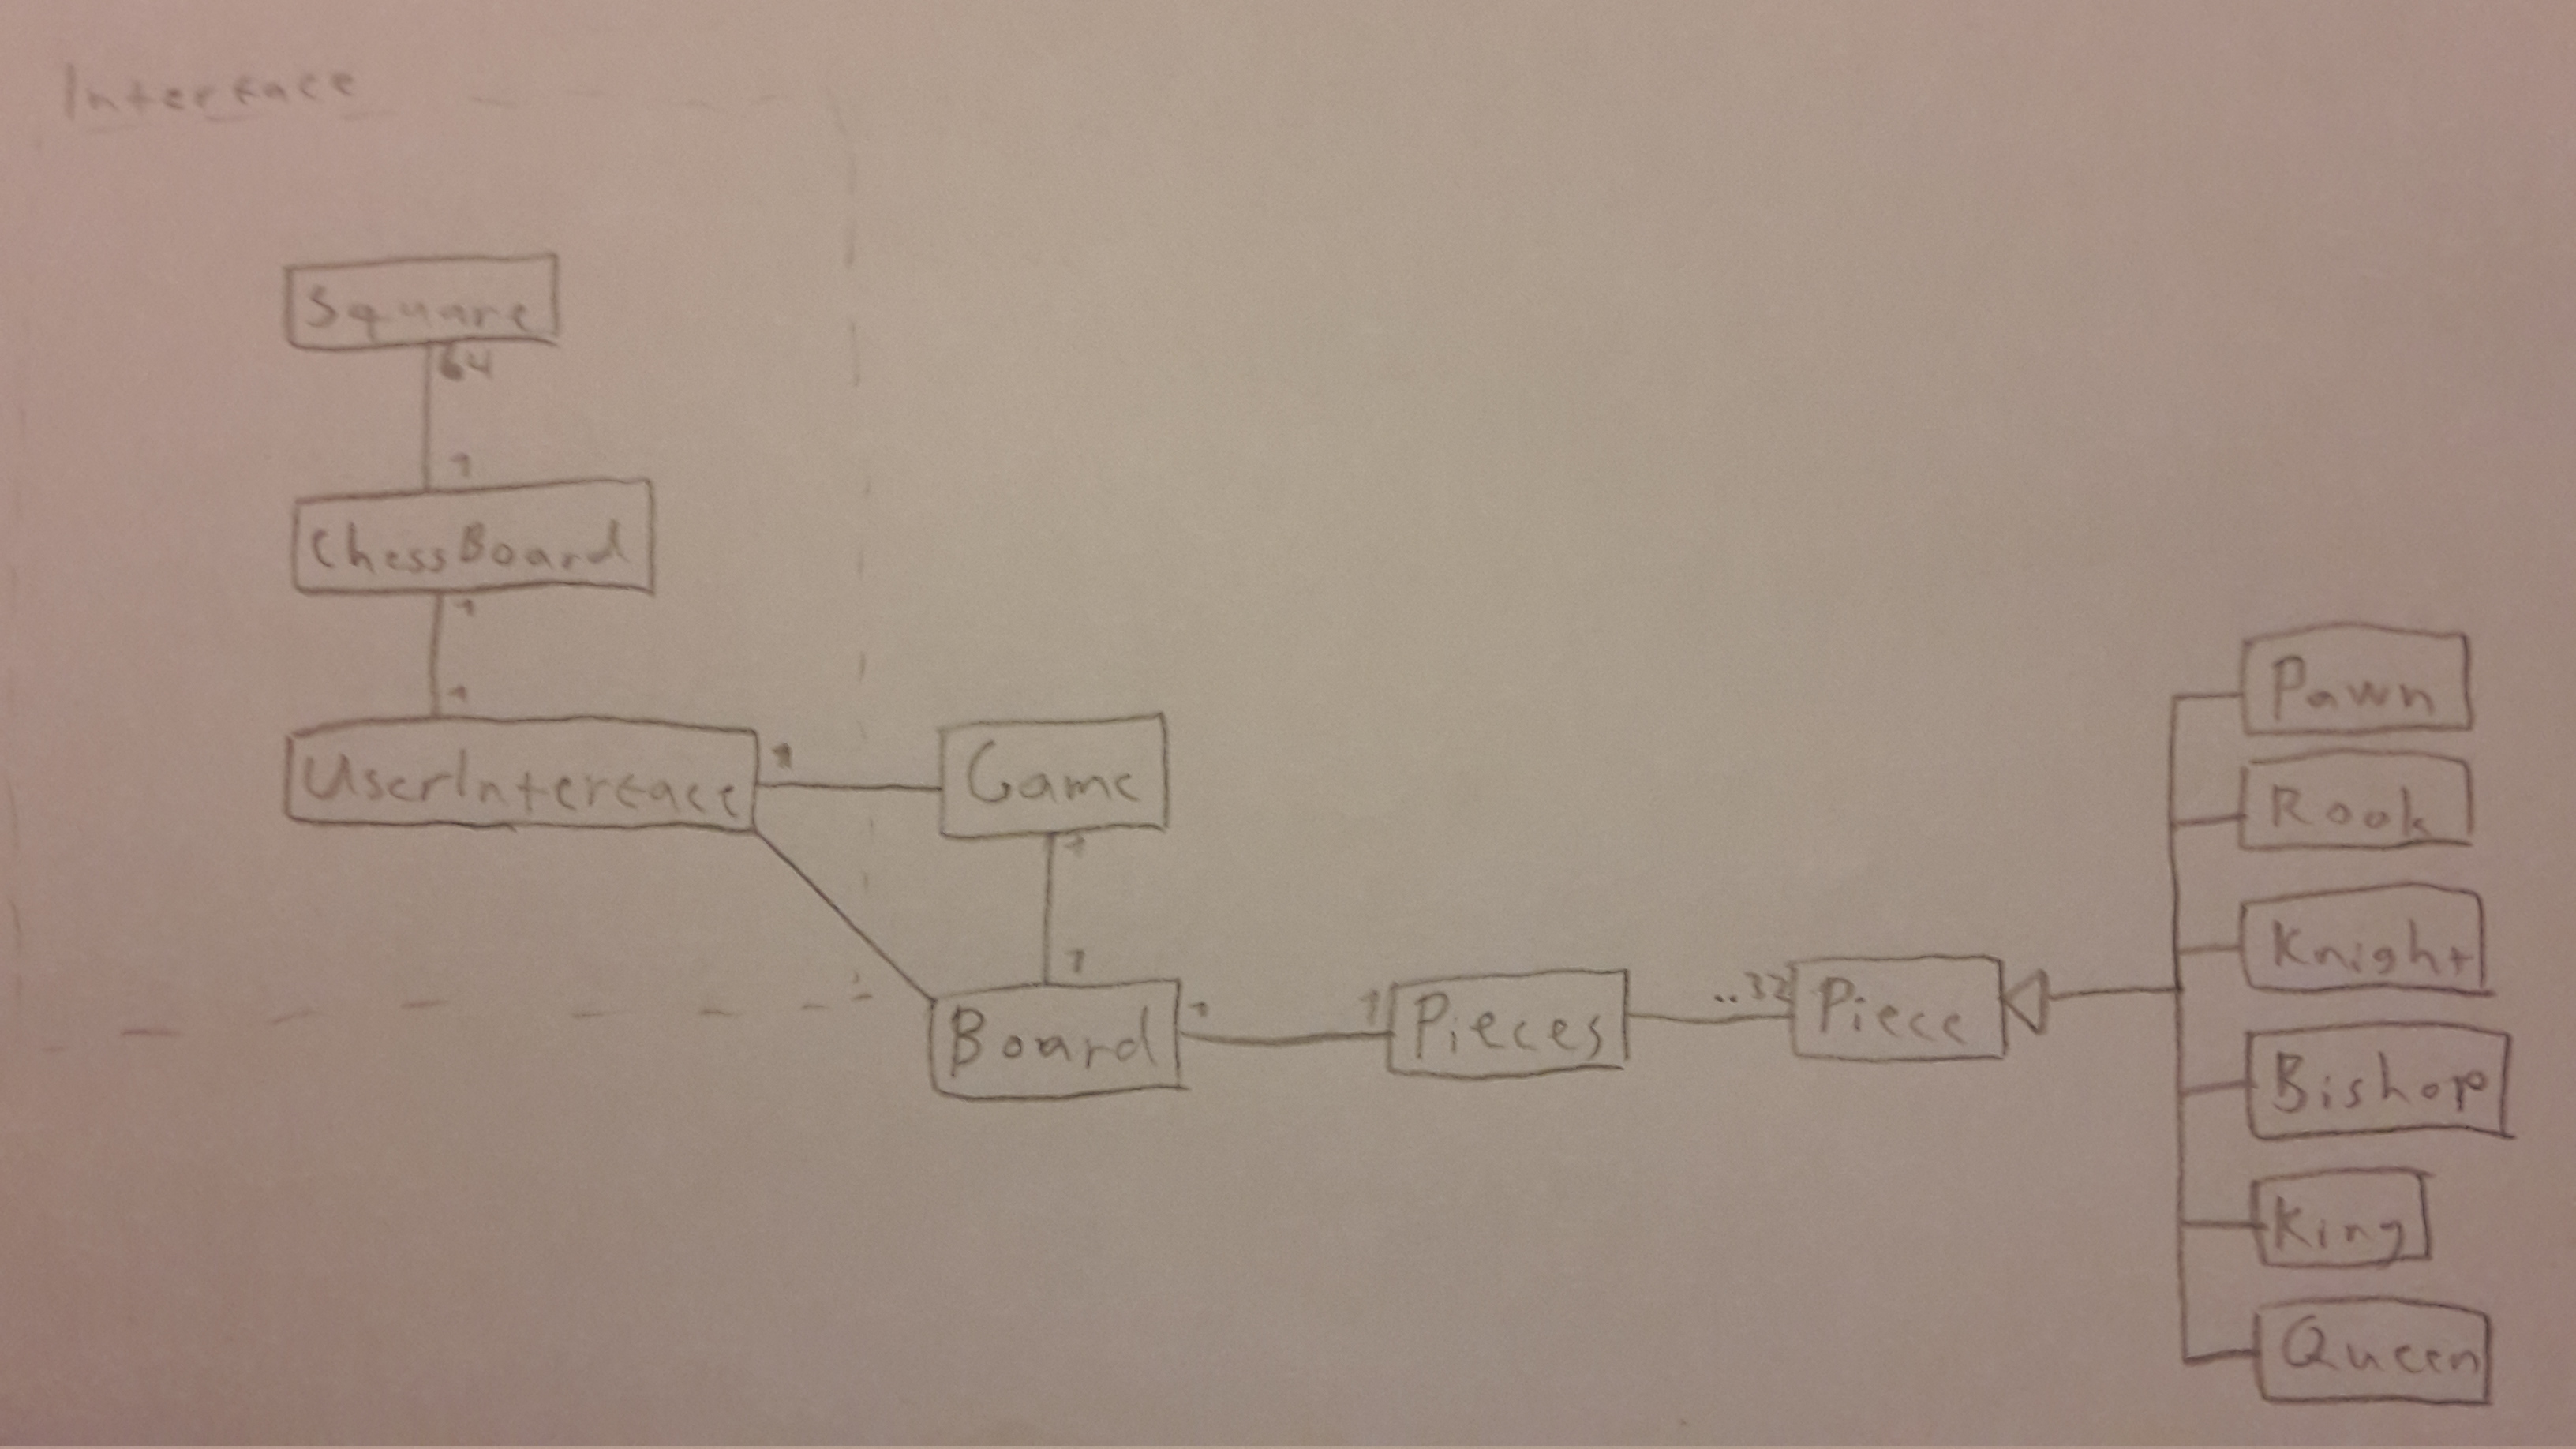 Interface
Square
64
1
ChessBoard
1
1
UserInterface
1
Game
1
1
Board
1
1
Pieces
..32
Piece
Pawn
Rook
Knight
Bishop
King
Queen